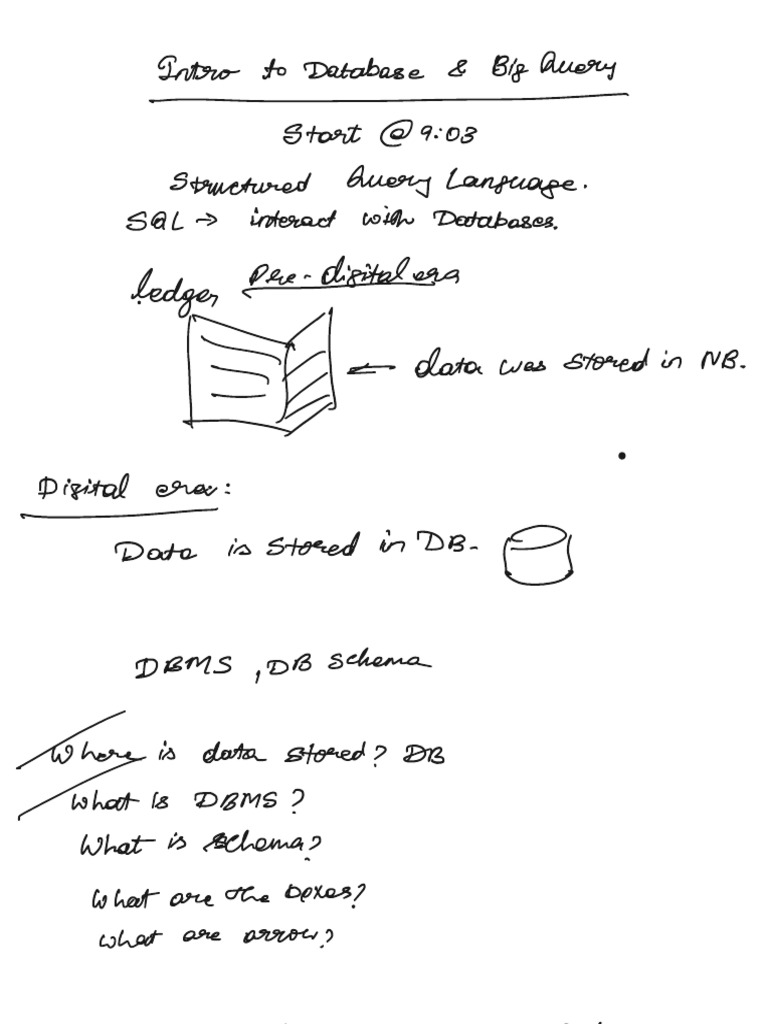 Intro to Database & Big Query
Start @ 9:03
Structured Query Language.
SQL → interact with Databases.
ledger Pre-digital era
← data was stored in NB.
Digital era:
Data is stored in DB.
DBMS, DB schema
Where is data stored? DB
What is DBMS?
What is schema?
What are the boxes?
What are arrow?